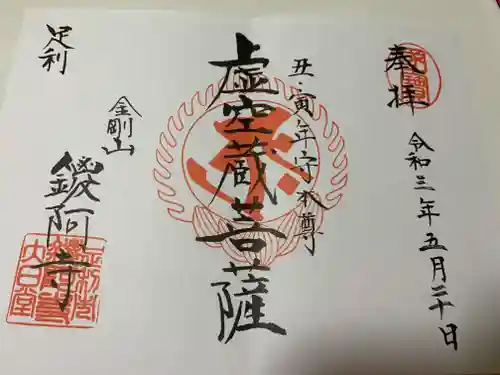 奉拝
令和三年五月二十日
丑・寅年守本尊
虚空蔵菩薩
足利
金剛山
鑁阿寺